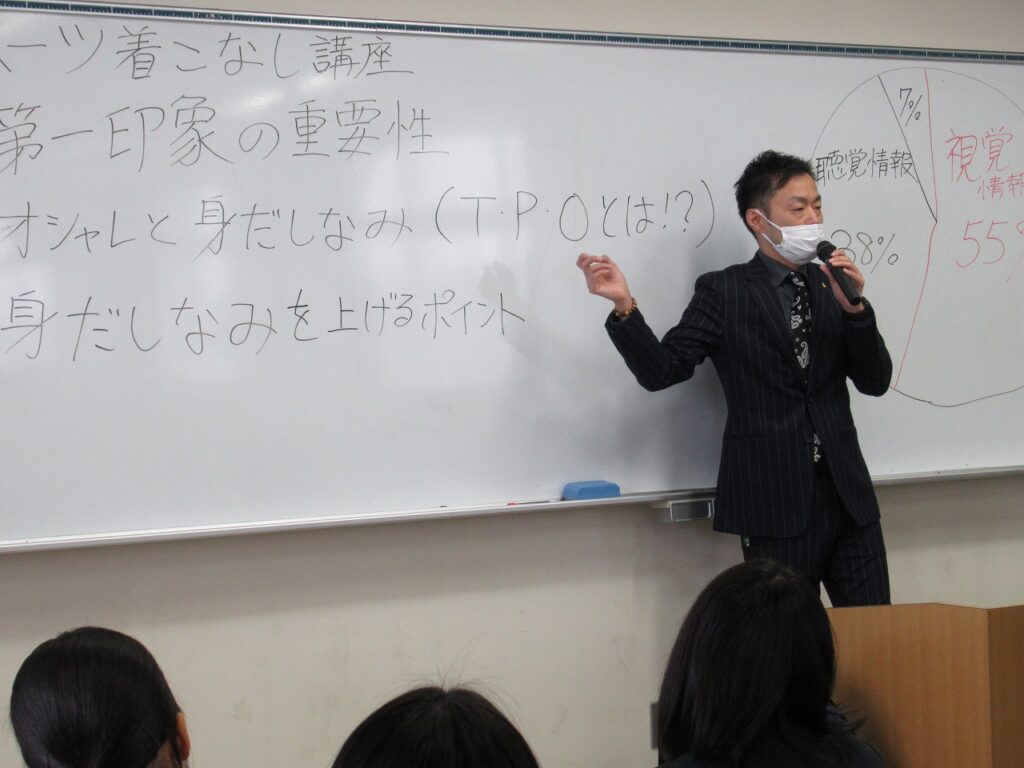 ーツ着こなし講座
第一印象の重要性
オシャレと身だしなみ(T・P・Oとは!?)
身だしなみを上げるポイント
7%
聴覚情報
38%
視覚
情報
55%